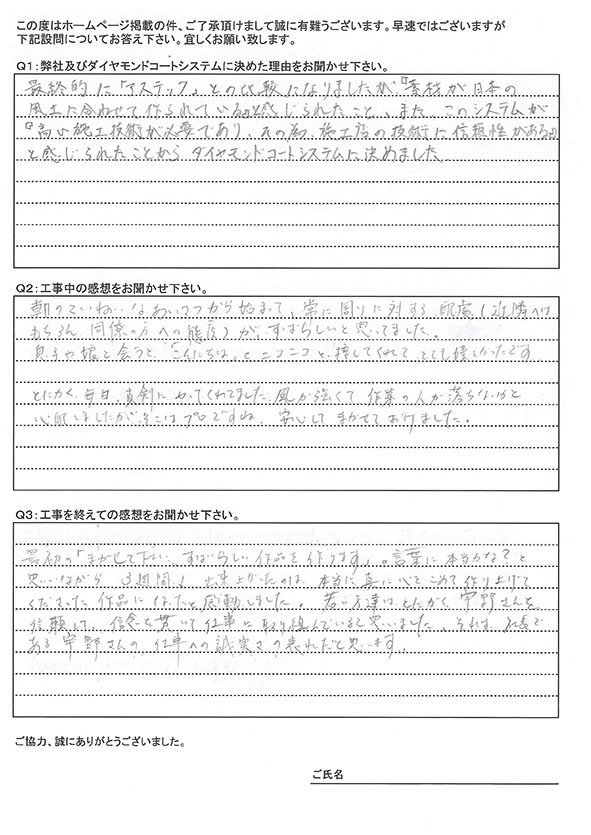 この度はホームページ掲載の件、ご了承頂けまして誠に有難うございます。早速ではございますが
下記設問についてお答え下さい。宜しくお願い致します。
Q1：弊社及びダイヤモンドコートシステムに決めた理由をお聞かせ下さい。
最終的に「アステック」との比較になりましたが『素材が日本の
風土に合わせて作られている』と感じられたこと、また、このシステムが
『高い施工技術が必要であり、その為、施工店の技術に信頼性がある』
と感じられたことからダイヤモンドコートシステムに決めました
Q2：工事中の感想をお聞かせ下さい。
朝のていねいなあいさつから始まって、常に周りに対する配慮（近隣へは
もちろん同僚の方への態度）が、すばらしいと思ってました。
息子や娘と会うと「こんにちは」とニコニコと接してくれて、とても嬉しかったです
とにかく毎日真剣にやってくれてました 風が強くて作業の人が落ちないかと
心配しましたがそこはプロですね 安心してまかせておけました。
Q3：工事を終えての感想をお聞かせ下さい。
最初の「まかせて下さい すばらしい作品を作ります」。言葉に本当かな？と
思いながら 3週間！ 出来上がったのは、本当に真に心をこめて作り上げて
くださった作品になったと感動しました。若い方達はとにかく宇野さんを
信頼して、信念を貫いて仕事に取り組んでいると思いました、それは、社長で
ある宇野さんの仕事への誠実さの表れだと思います。
ご協力、誠にありがとうございました。
ご氏名